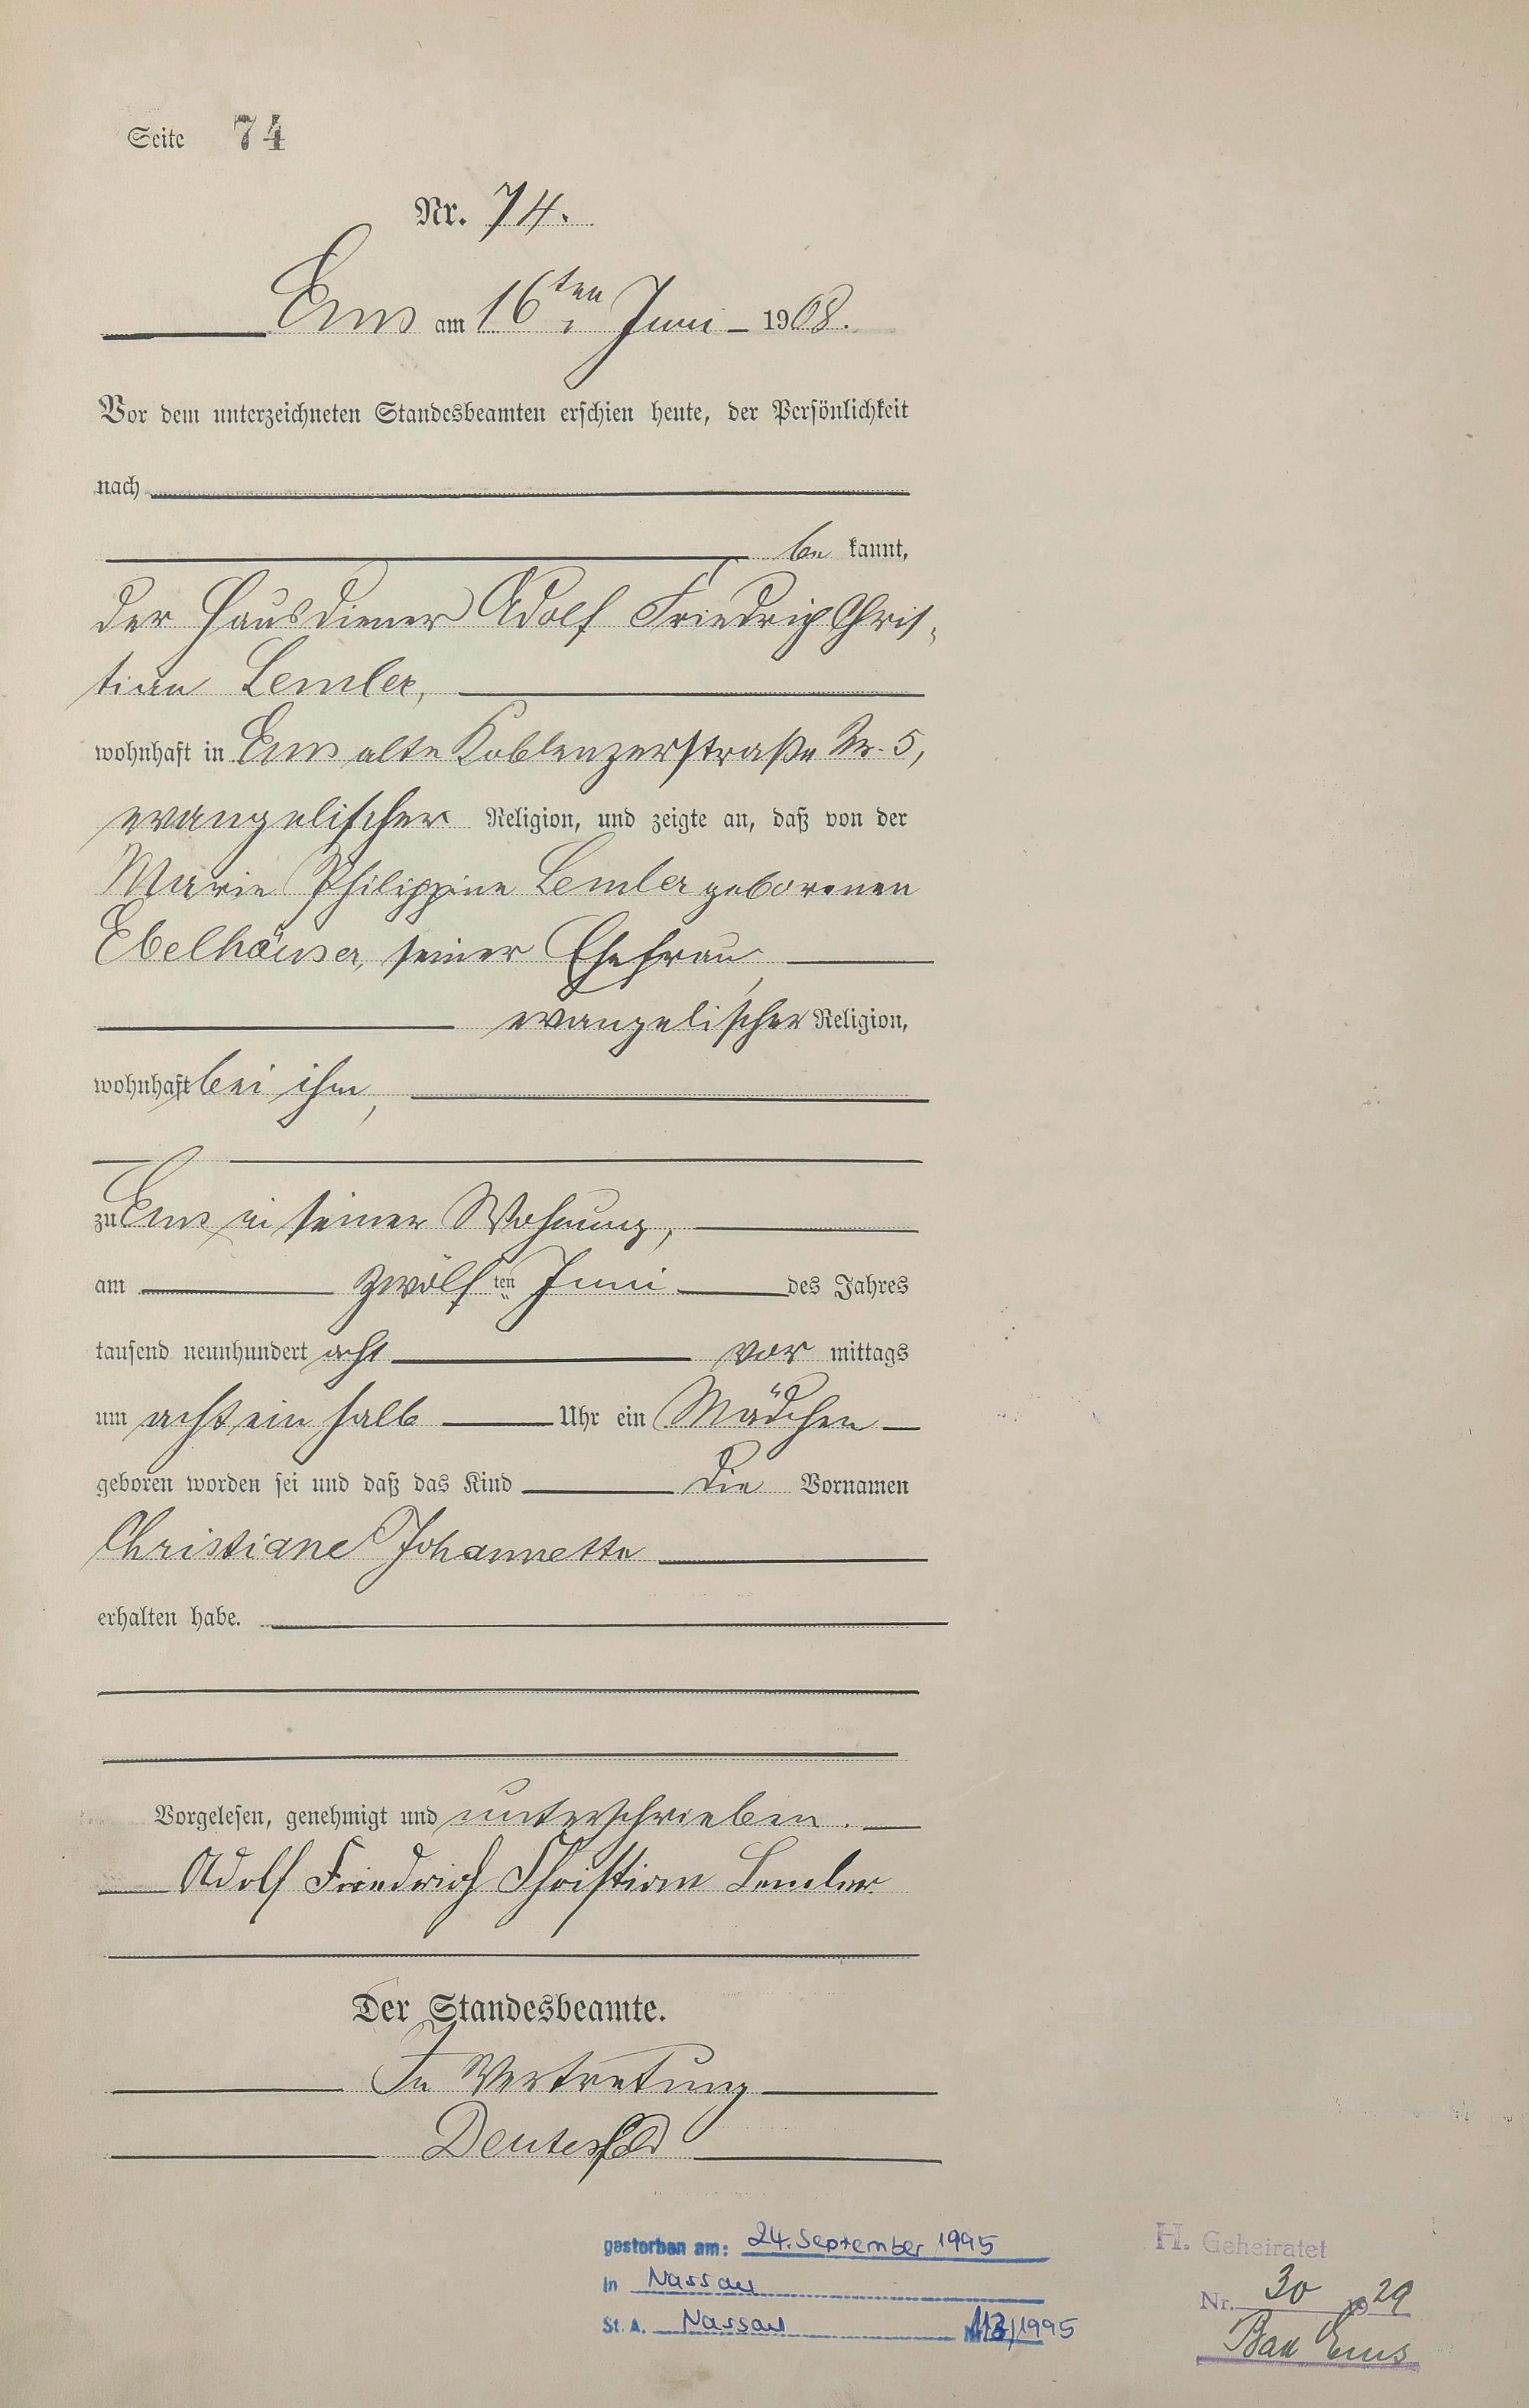 Seite 74
Nr. 74.
Ems am 16ten Juni 1908.
Vor dem unterzeichneten Standesbeamten erschien heute, der Persönlichkeit
nach
be kannt,
der Hausdiener Adolf Friedrich Chris-
tian Lemler,
wohnhaft in Ems alte Koblenzerstraße Nr. 5,
evangelischer Religion, und zeigte an, daß von der
Marie Philippine Lemler geborenen
Ebelhäuser, seiner Ehefrau,
evangelischer Religion,
wohnhaft bei ihm,
zu Ems in seiner Wohnung,
am zwölften Juni des Jahres
tausend neunhundert acht vor mittags
um acht ein halb Uhr ein Mädchen
geboren worden sei und daß das Kind die Vornamen
Christiane Johannette
erhalten habe.
Vorgelesen, genehmigt und unterschrieben.
Adolf Friedrich Christian Lemler
Der Standesbeamte.
In Vertretung
gestorben am: 24. September 1995
in Nassau
St. A. Nassau /1995
H. Geheiratet
Nr. 30 29
Bad Ems